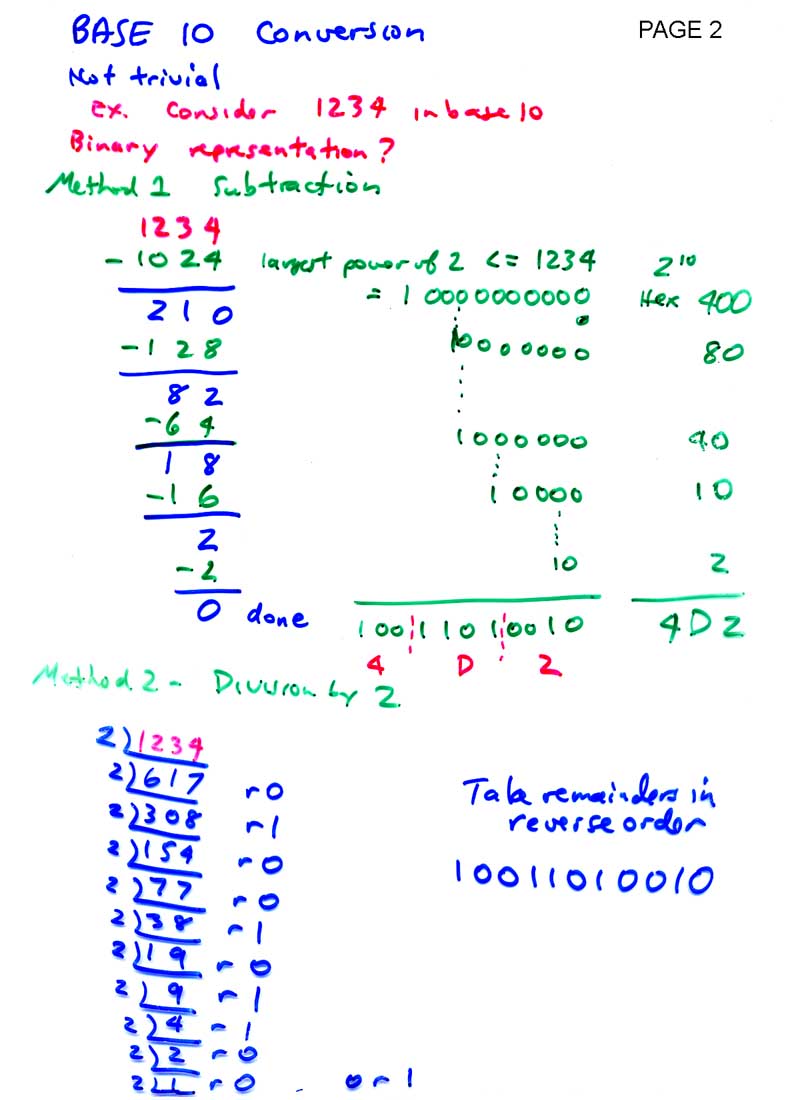 BASE 10 Conversion
PAGE 2
Not trivial
Ex. Consider 1234 in base 10
Binary representation?
Method 1 Subtraction
1234
-1024 largest power of 2 <= 1234 2^10
= 1 0000000000 Hex 400
210
-128 10000000 80
82
-64 1000000 40
18
-16 10000 10
2
-2 10 2
0 done 100 1101 0010 4D2
4 D 2
Method 2 - Division by 2
2)1234
2)617 r0
2)308 r1
2)154 r0
2)77 r0
2)38 r1
2)19 r0
2)9 r1
2)4 r1
2)2 r0
2)1 r0 0 r1
Take remainders in
reverse order
10011010010